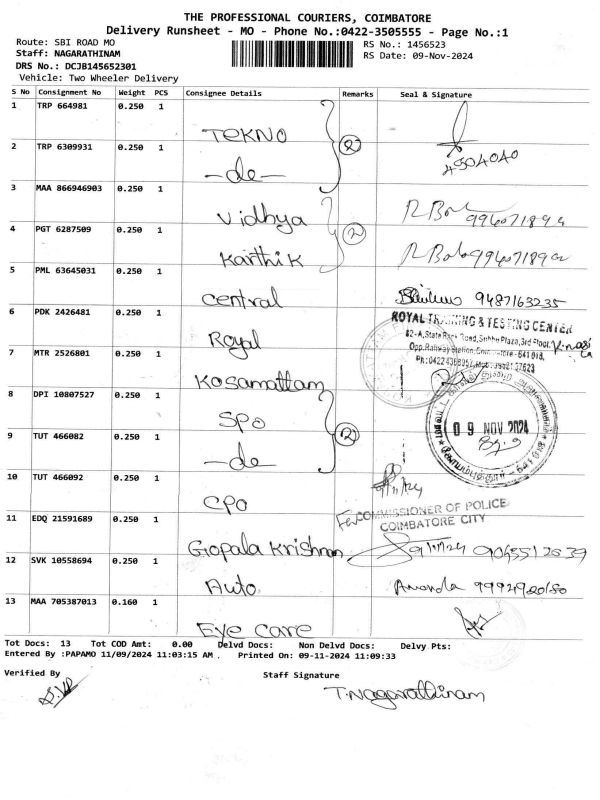 THE PROFESSIONAL COURIERS, COIMBATORE
Delivery Runsheet - MO - Phone No.:0422-3505555 - Page No.:1
Route: SBI ROAD MO
RS No.: 1456523
Staff: NAGARATHINAM
RS Date: 09-Nov-2024
DRS No.: DCJB145652301
Vehicle: Two Wheeler Delivery
S No Consignment No Weight PCS Consignee Details Remarks Seal & Signature
1 TRP 664981 0.250 1 TEKNO
2 TRP 6309931 0.250 1 -do- 2 4504040
3 MAA 866946903 0.250 1 Vidhya
4 PGT 6287509 0.250 1 Karthik 2
5 PML 63645031 0.250 1 Central 9487163235
6 PDK 2426481 0.250 1 Royal
ROYAL TRAINING & TESTING CENTER
82-A, State Bank Road, Subbu Plaza, 3rd Floor,
Opp. Railway Station, Coimbatore - 641 018,
7 MTR 2526801 0.250 1 Kosamattam
8 DPI 10807527 0.250 1 SPO
09 NOV 2024
9 TUT 466082 0.250 1 -do- 2
10 TUT 466092 0.250 1 CPO
COMMISSIONER OF POLICE
COIMBATORE CITY
11 EDQ 21591689 0.250 1 Gopala Krishnan
12 SVK 10558694 0.250 1 Auto
13 MAA 705387013 0.160 1 Eye care
Tot Docs: 13 Tot COD Amt: 0.00 Delvd Docs: Non Delvd Docs: Delvy Pts:
Entered By :PAPAMO 11/09/2024 11:03:15 AM . Printed On: 09-11-2024 11:09:33
Verified By Staff Signature
T.Nagarathinam